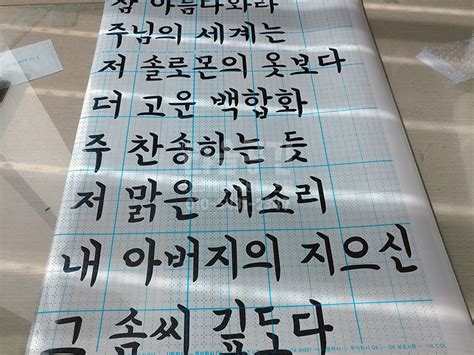 참 아름다와라
주님의 세계는
저 솔로몬의 옷보다
더 고운 백합화
주 찬송하는 듯
저 맑은 새소리
내 아버지의 지으신
그 솜씨 깊도다